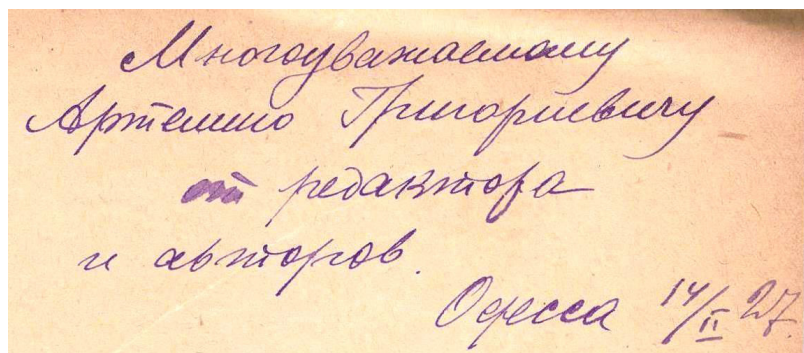 Многоуважаемому
Артемию Григориевичу
от редактора
и авторов.
Одесса 14/II 27